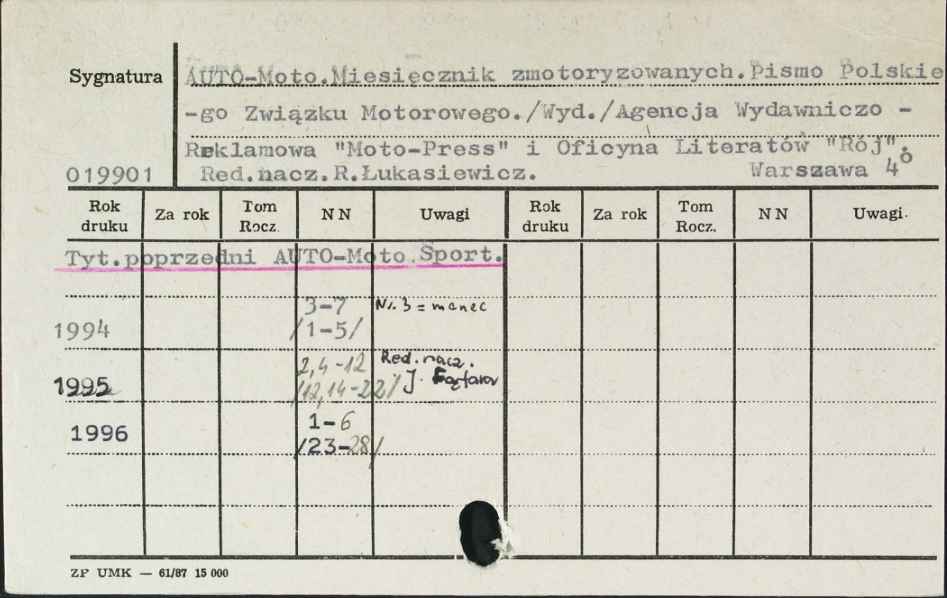 Sygnatura
AUTO-Moto.Miesięcznik zmotoryzowanych.Pismo Polskie
-go Związku Motorowego./Wyd./Agencja Wydawniczo -
Reklamowa "Moto-Press" i Oficyna Literatów "Rój".
019901 Red.nacz.R.Łukasiewicz. Warszawa 4°
Rok druku Za rok Tom Rocz. NN Uwagi Rok druku Za rok Tom Rocz. NN Uwagi.
Tyt.poprzedni AUTO-Moto Sport.
3-7 Nr. 3 = marzec
1994 /1-5/
2,4-12 Red. nacz.
1995 /12,14-22/ J.
1-6
1996 /23-28/
ZP UMK — 61/87 15 000